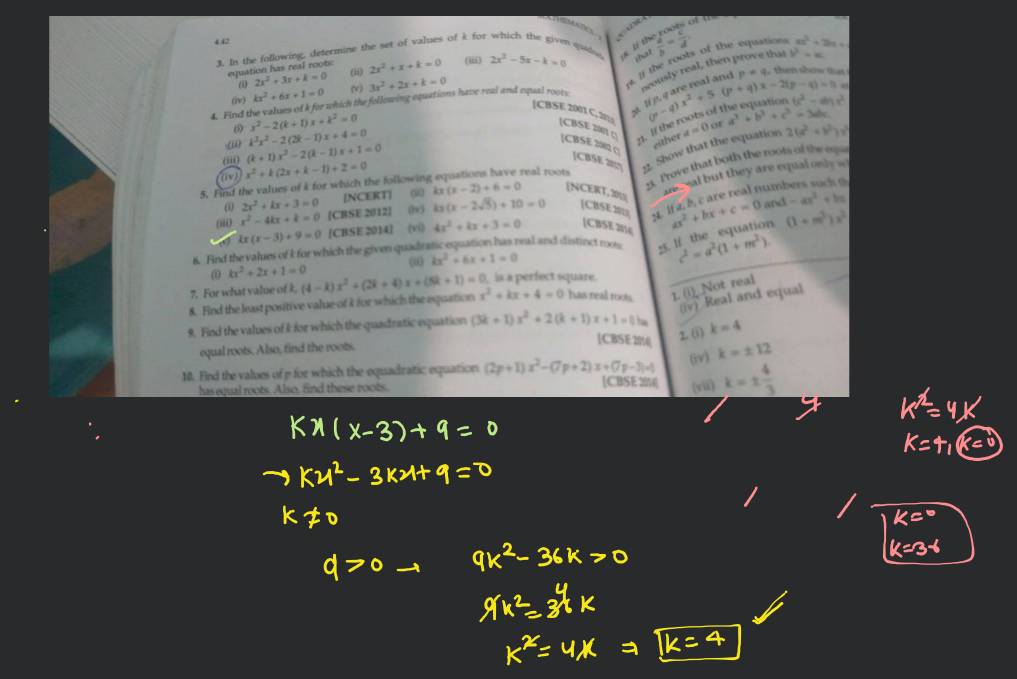 4.42
3. In the following, determine the set of values of k for which the given quadratic
equation has real roots:
(i) 2x² + 3x + k = 0 (ii) 2x² + x + k = 0 (iii) 2x² - 5x - k = 0
(iv) kx² + 6x + 1 = 0 (v) 3x² + 2x + k = 0
4. Find the values of k for which the following equations have real and equal roots:
(i) x² - 2(k + 1) x + k² = 0 [CBSE 2001 C, 2013]
(ii) k²x² - 2(2k - 1)x + 4 = 0 [CBSE 2001 C]
(iii) (k + 1) x² - 2(k - 1)x + 1 = 0 [CBSE 2002 C]
(iv) x² + k (2x + k - 1) + 2 = 0 [CBSE 2017]
5. Find the values of k for which the following equations have real roots
(i) 2x² + kx + 3 = 0 [NCERT] (ii) kx (x - 2) + 6 = 0 [NCERT,
(iii) x² - 4kx + k = 0 [CBSE 2012] (iv) kx(x - 2√5) + 10 = 0 [CBSE 2013]
(v) kx (x - 3) + 9 = 0 [CBSE 2014] (vi) 4x² + kx + 3 = 0 [CBSE 2014]
6. Find the values of k for which the given quadratic equation has real and distinct roots:
(i) kx² + 2x + 1 = 0 (ii) kx² + 6x + 1 = 0
7. For what value of k, (4 - k) x² + (2k + 4) x + (8k + 1) = 0, is a perfect square.
8. Find the least positive value of k for which the equation x² + kx + 4 = 0 has real roots.
9. Find the values of k for which the quadratic equation (3k + 1) x² + 2 (k + 1) x + 1 = 0 has
equal roots. Also, find the roots. [CBSE 2014]
10. Find the values of p for which the quadratic equation (2p + 1) x² - (7p + 2) x + (7p - 3) = 0
has equal roots. Also, find these roots. [CBSE 2014]
If the roots of the equations
neously real, then prove that b² = ac.
If p, q are real and p ≠ q, then show that
(p - q) x² + 5 (p + q) x - 2(p - q) = 0
21. If the roots of the equation
either a = 0 or a³ + b³ + c³ = 3abc.
22. Show that the equation 2 (a² + b²) x²
23. Prove that both the roots of the equation
but they are equal only
24. If a, b, c are real numbers such that
ax² + bx + c = 0 and - ax² + bx
25. If the equation (1 + m²) x²
c² = a² (1 + m²).
1. (i) Not real
(iv) Real and equal
2. (i) k = 4
(iv) k = ± 12
(vii) k = ± 4/3
Kx(x-3)+9 = 0
→ Kx² - 3Kx+9 = 0
K ≠ 0
d > 0 → 9K² - 36K > 0
9K² = 36 K
4
K² = 4K ⇒ K = 4
K² = 4K
K=4, K=0
K=0
K=36